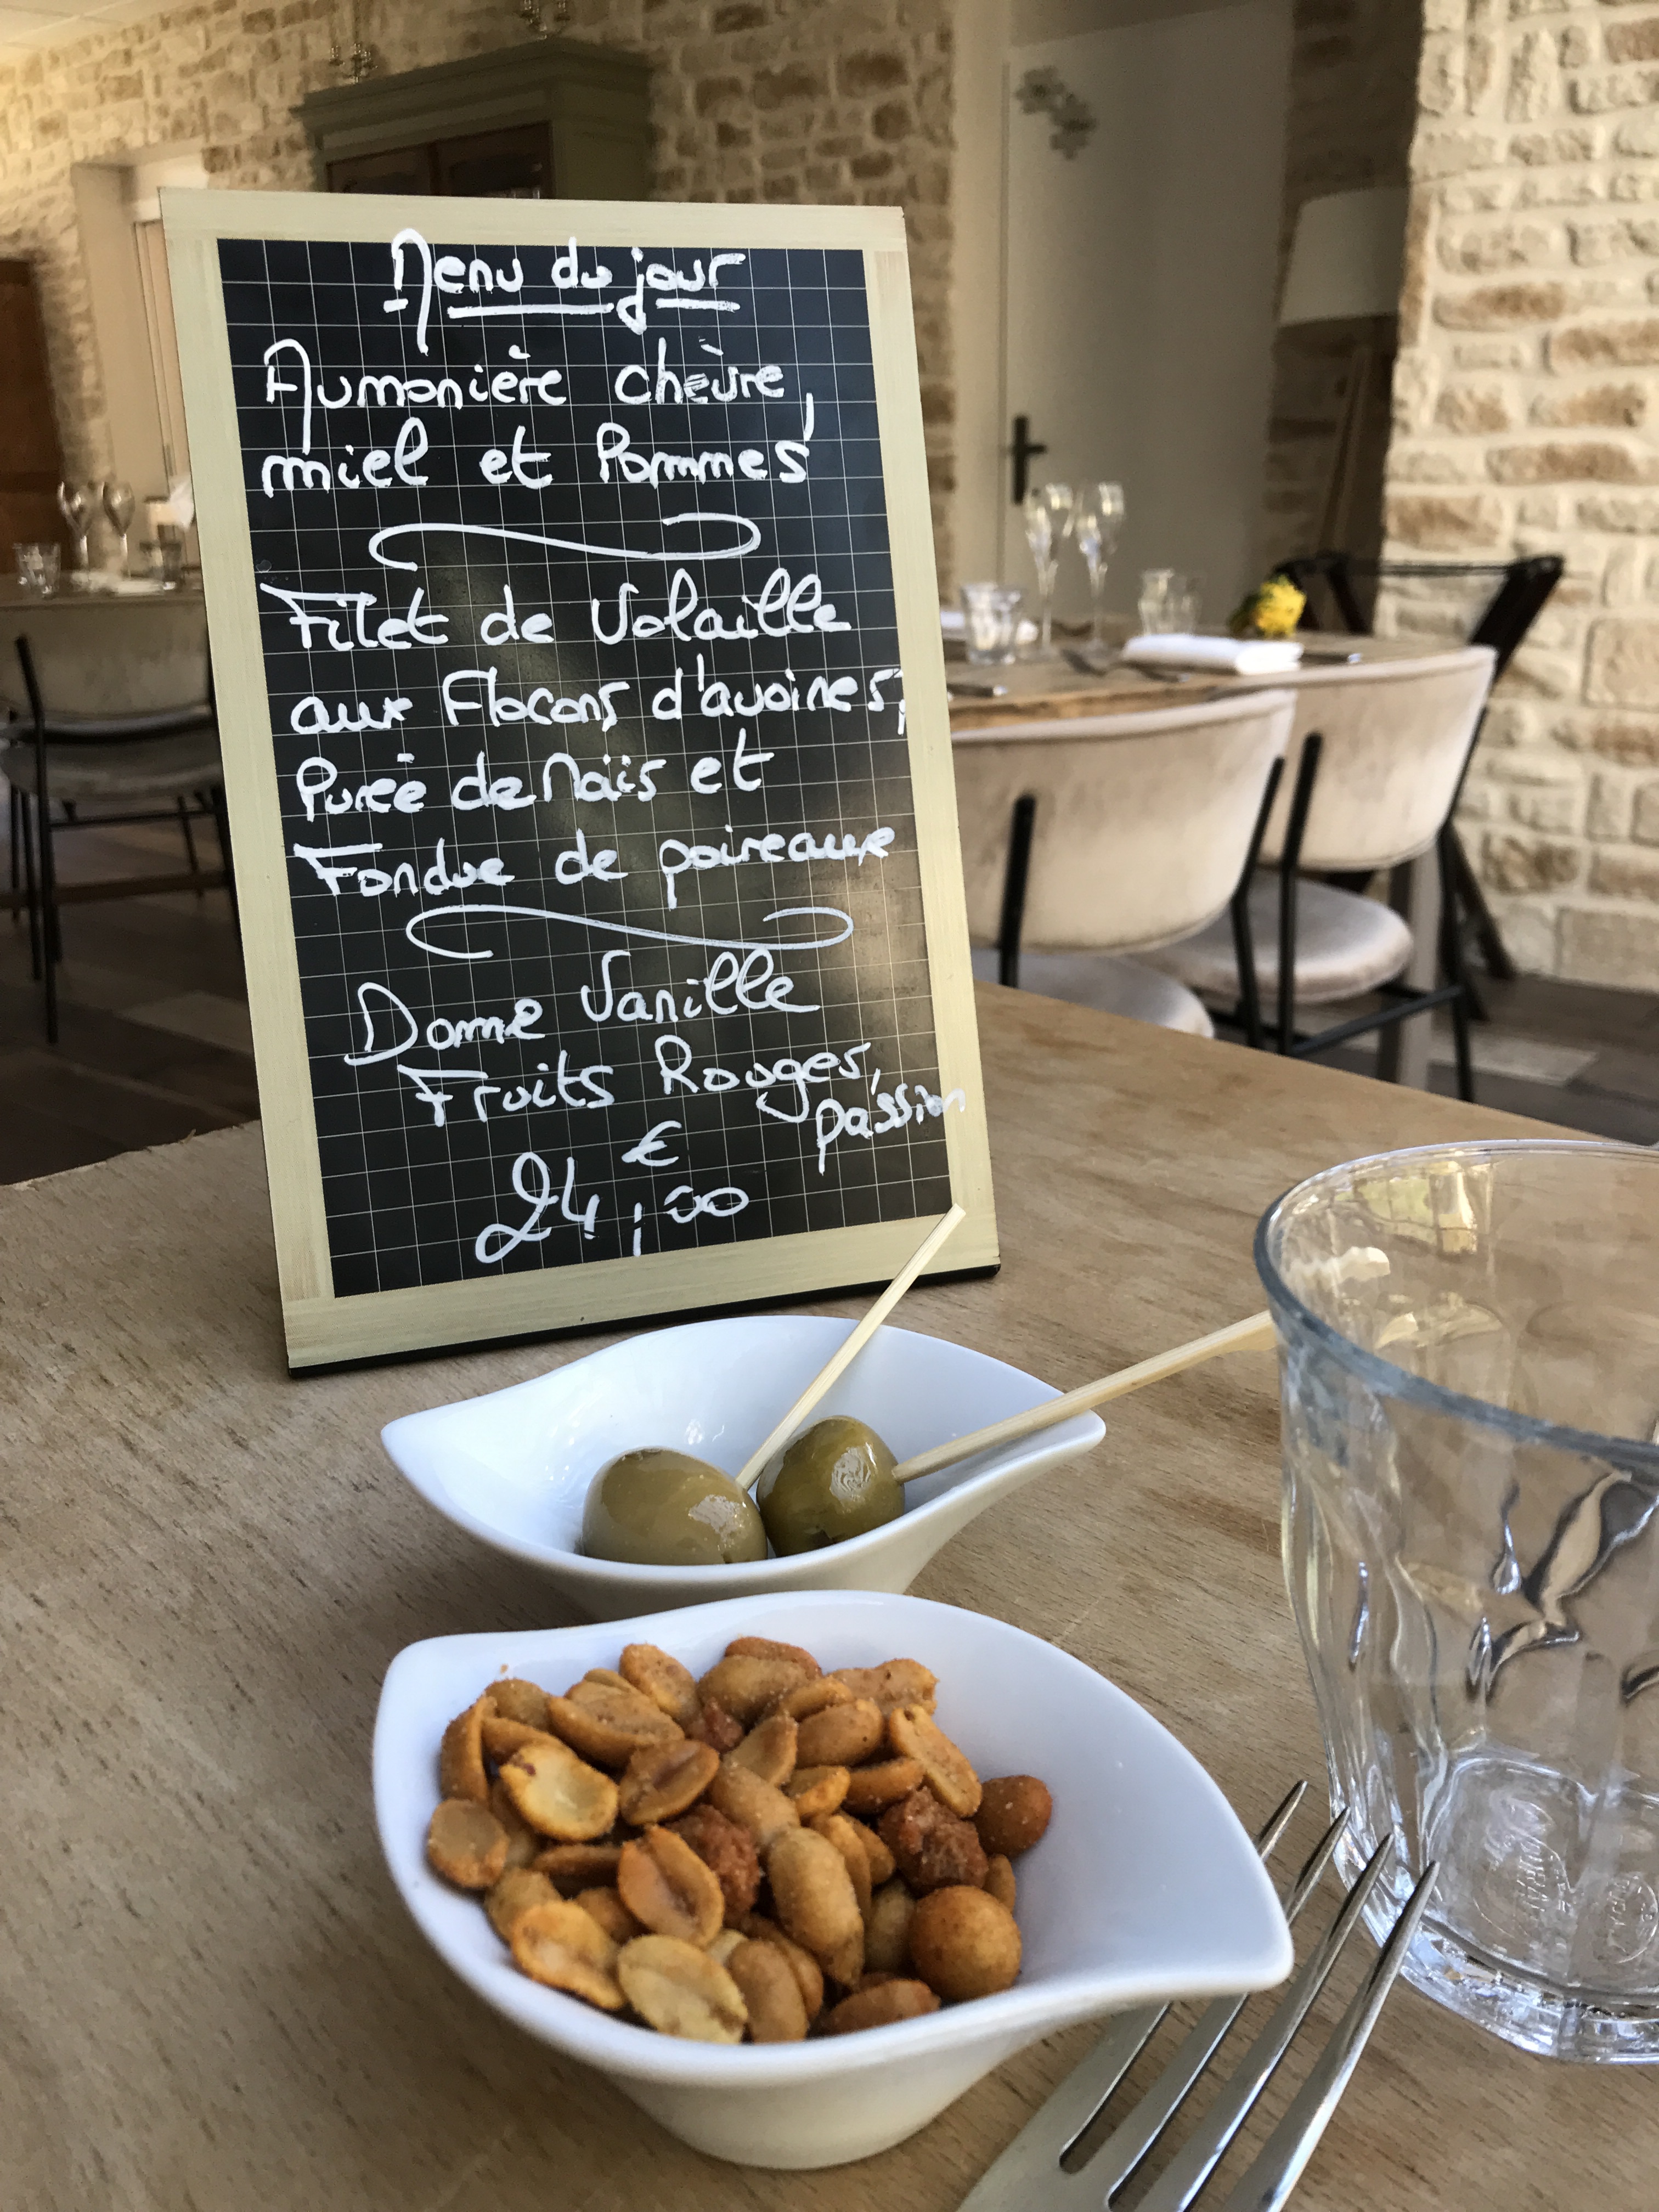 Menu du jour
Aumonière chèvre,
miel et Pommes
Filet de Volaille
aux Flocons d'avoines,
Purée de Maïs et
Fondue de poireaux
Dome Vanille
Fruits Rouges,
passion
€
24,00